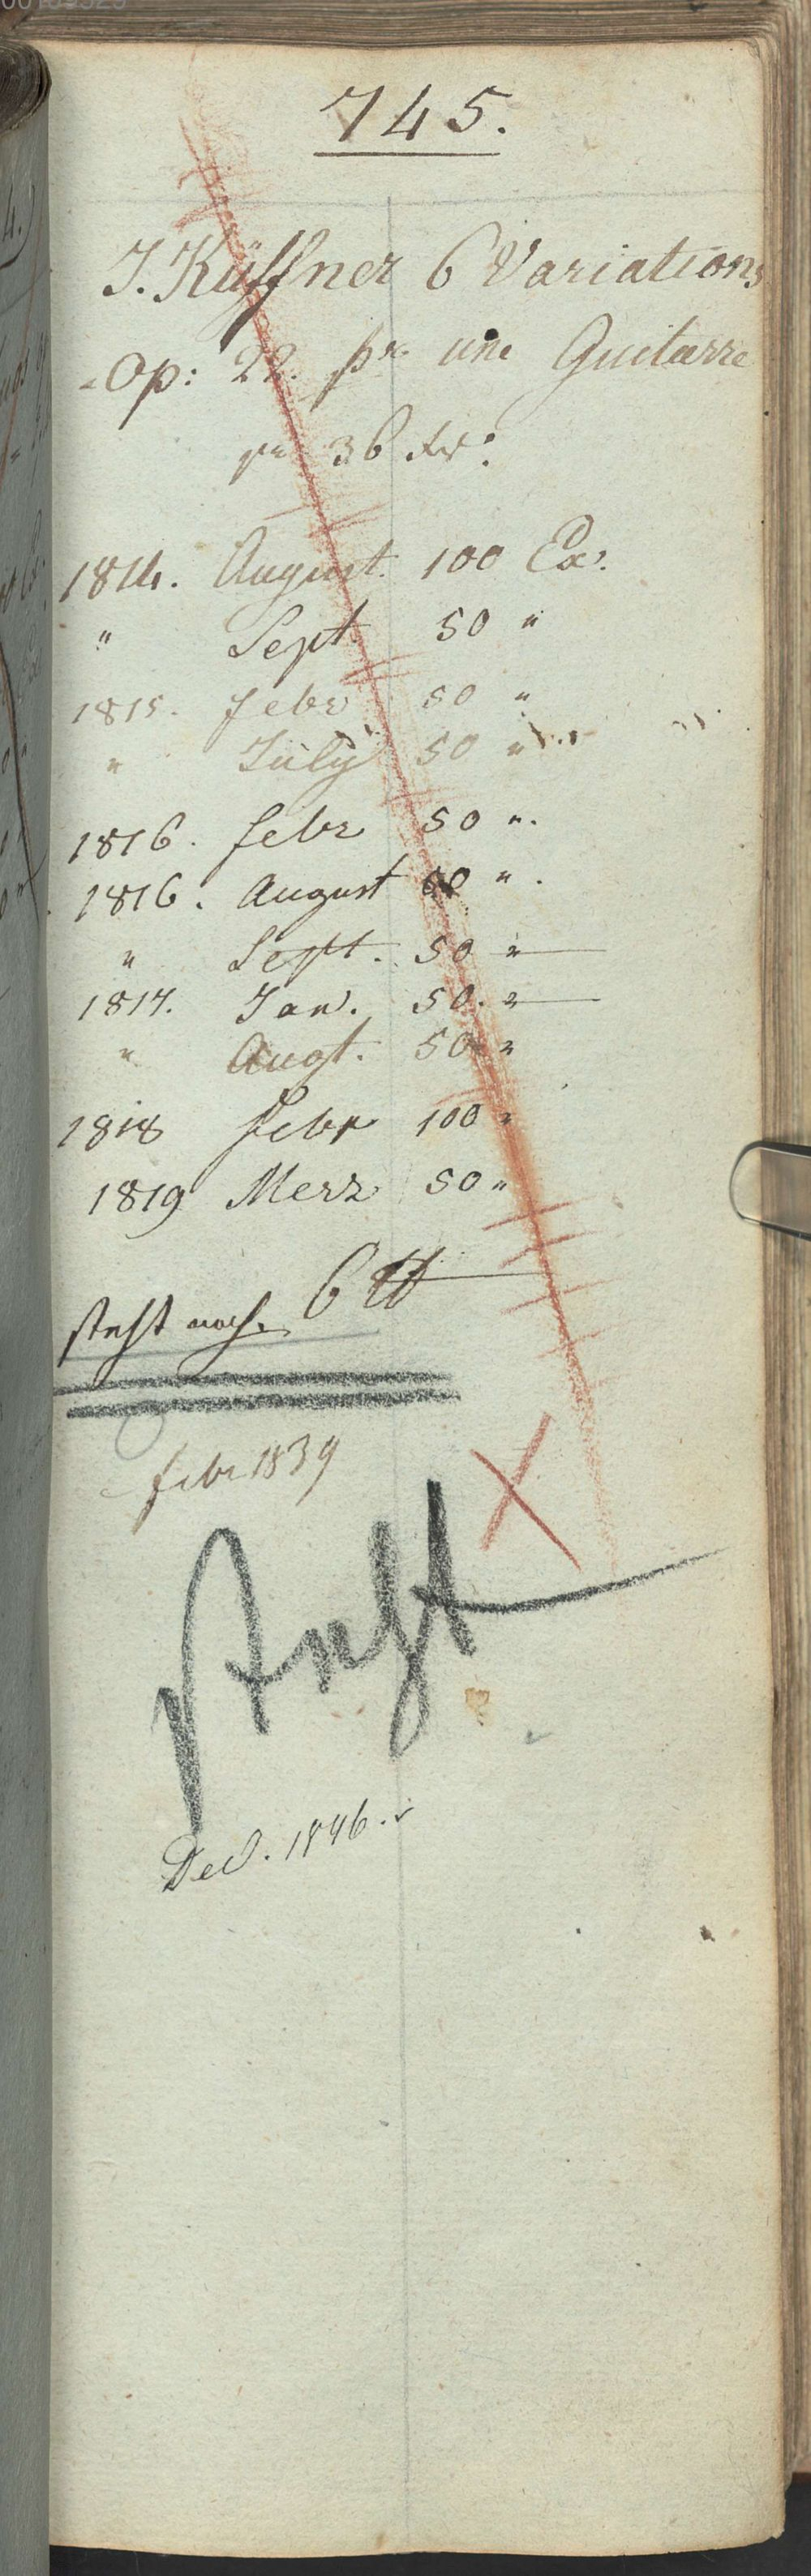 745.
J. Küffner 6 Variations
Op: 22. pr une Guitarre
pr 36 Xr:
1814. August. 100 Ex:
" Sept 50 "
1815. febr 50 "
" July 50 "
1816. febr 50 ".
1816. August 60 ".
" Sept. 50 "
1817. Jan. 50. "
" Augt. 50 "
1818 febr 100 "
1819 Merz 50 "
steht noch. 6
febr 1839
Dec. 1846.